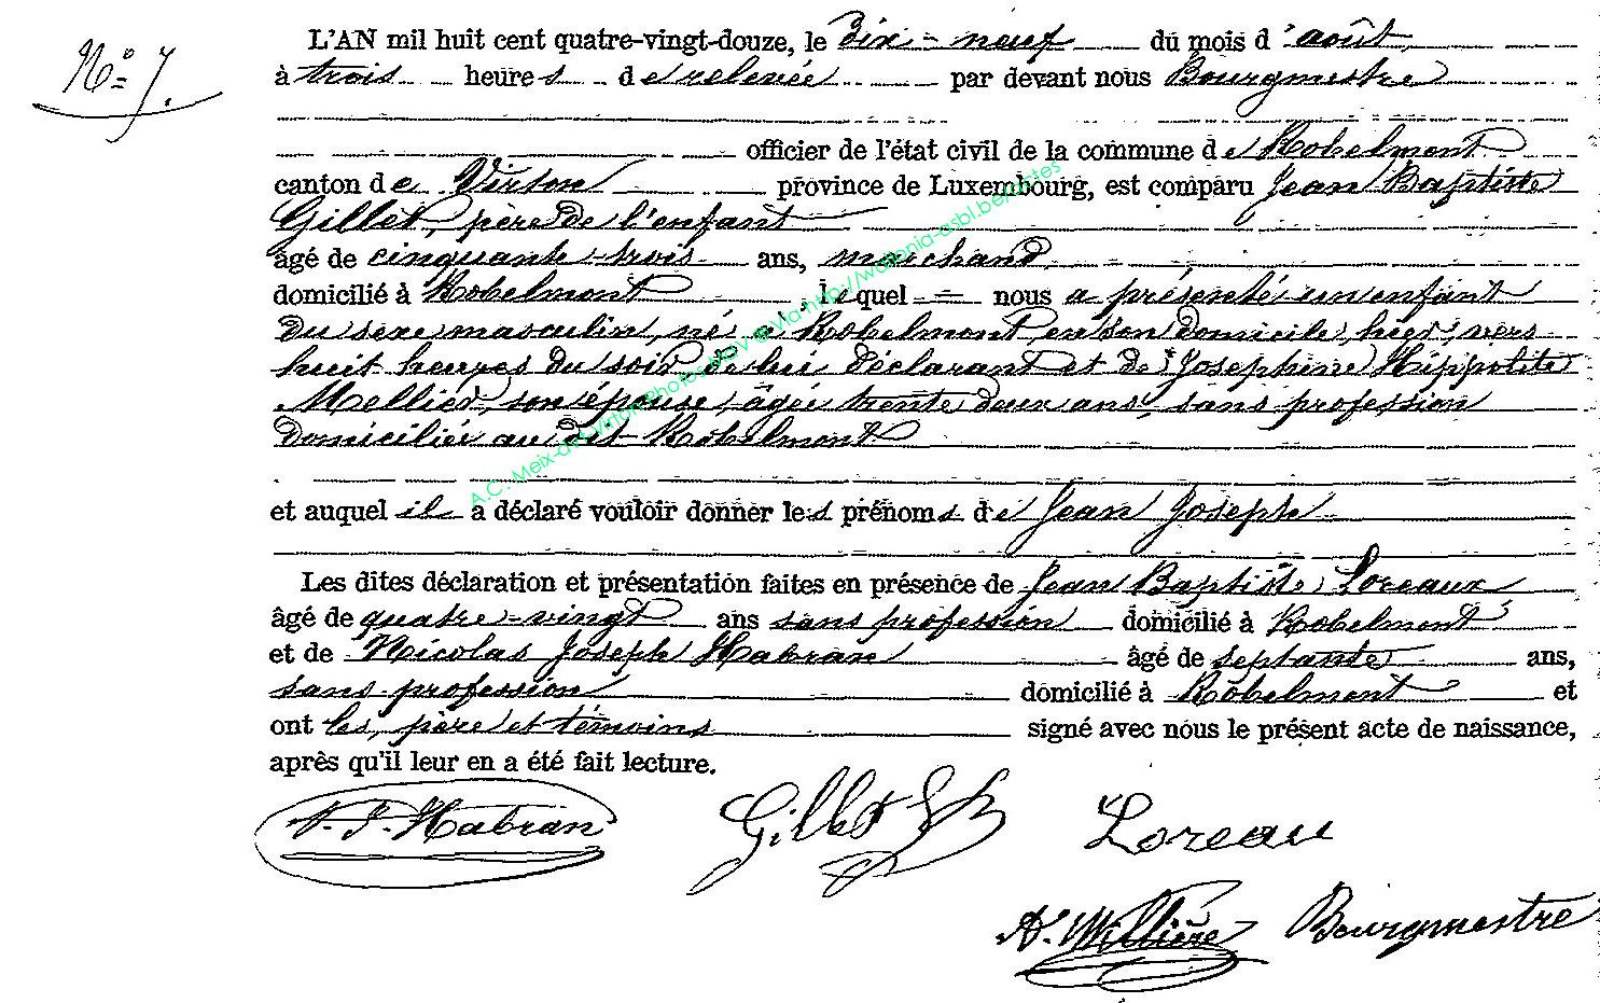 N° 7.
L'AN mil huit cent quatre-vingt-douze, le dix-neuf du mois d'août
à trois heures de relevée par devant nous Bourgmestre
officier de l'état civil de la commune de Robelmont
canton de Virton province de Luxembourg, est comparu Jean Baptiste
Gillet, père de l'enfant
âgé de cinquante-trois ans, marchand
domicilié à Robelmont lequel = nous a présenté un enfant
du sexe masculin, né à Robelmont, en son domicile, hier, vers
huit heures du soir de lui déclarant et de Josephine Hippolite
Mellier, son épouse, âgée trente deux ans, sans profession
domiciliée au dit Robelmont
et auquel il a déclaré vouloir donner les prénoms de Jean Joseph
Les dites déclaration et présentation faites en présence de Jean Baptiste Loreaux
âgé de quatre-vingt ans sans profession domicilié à Robelmont
et de Nicolas Joseph Habran âgé de septante ans,
sans profession domicilié à Robelmont et
ont les, père et témoins signé avec nous le présent acte de naissance,
après qu'il leur en a été fait lecture.
N. J. Habran Gillet JB Loreau
A. Millière Bourgmestre
A.C. Meix-dvt-Virton Photos MGV @ Via http://wallonia-asbl.be/actes